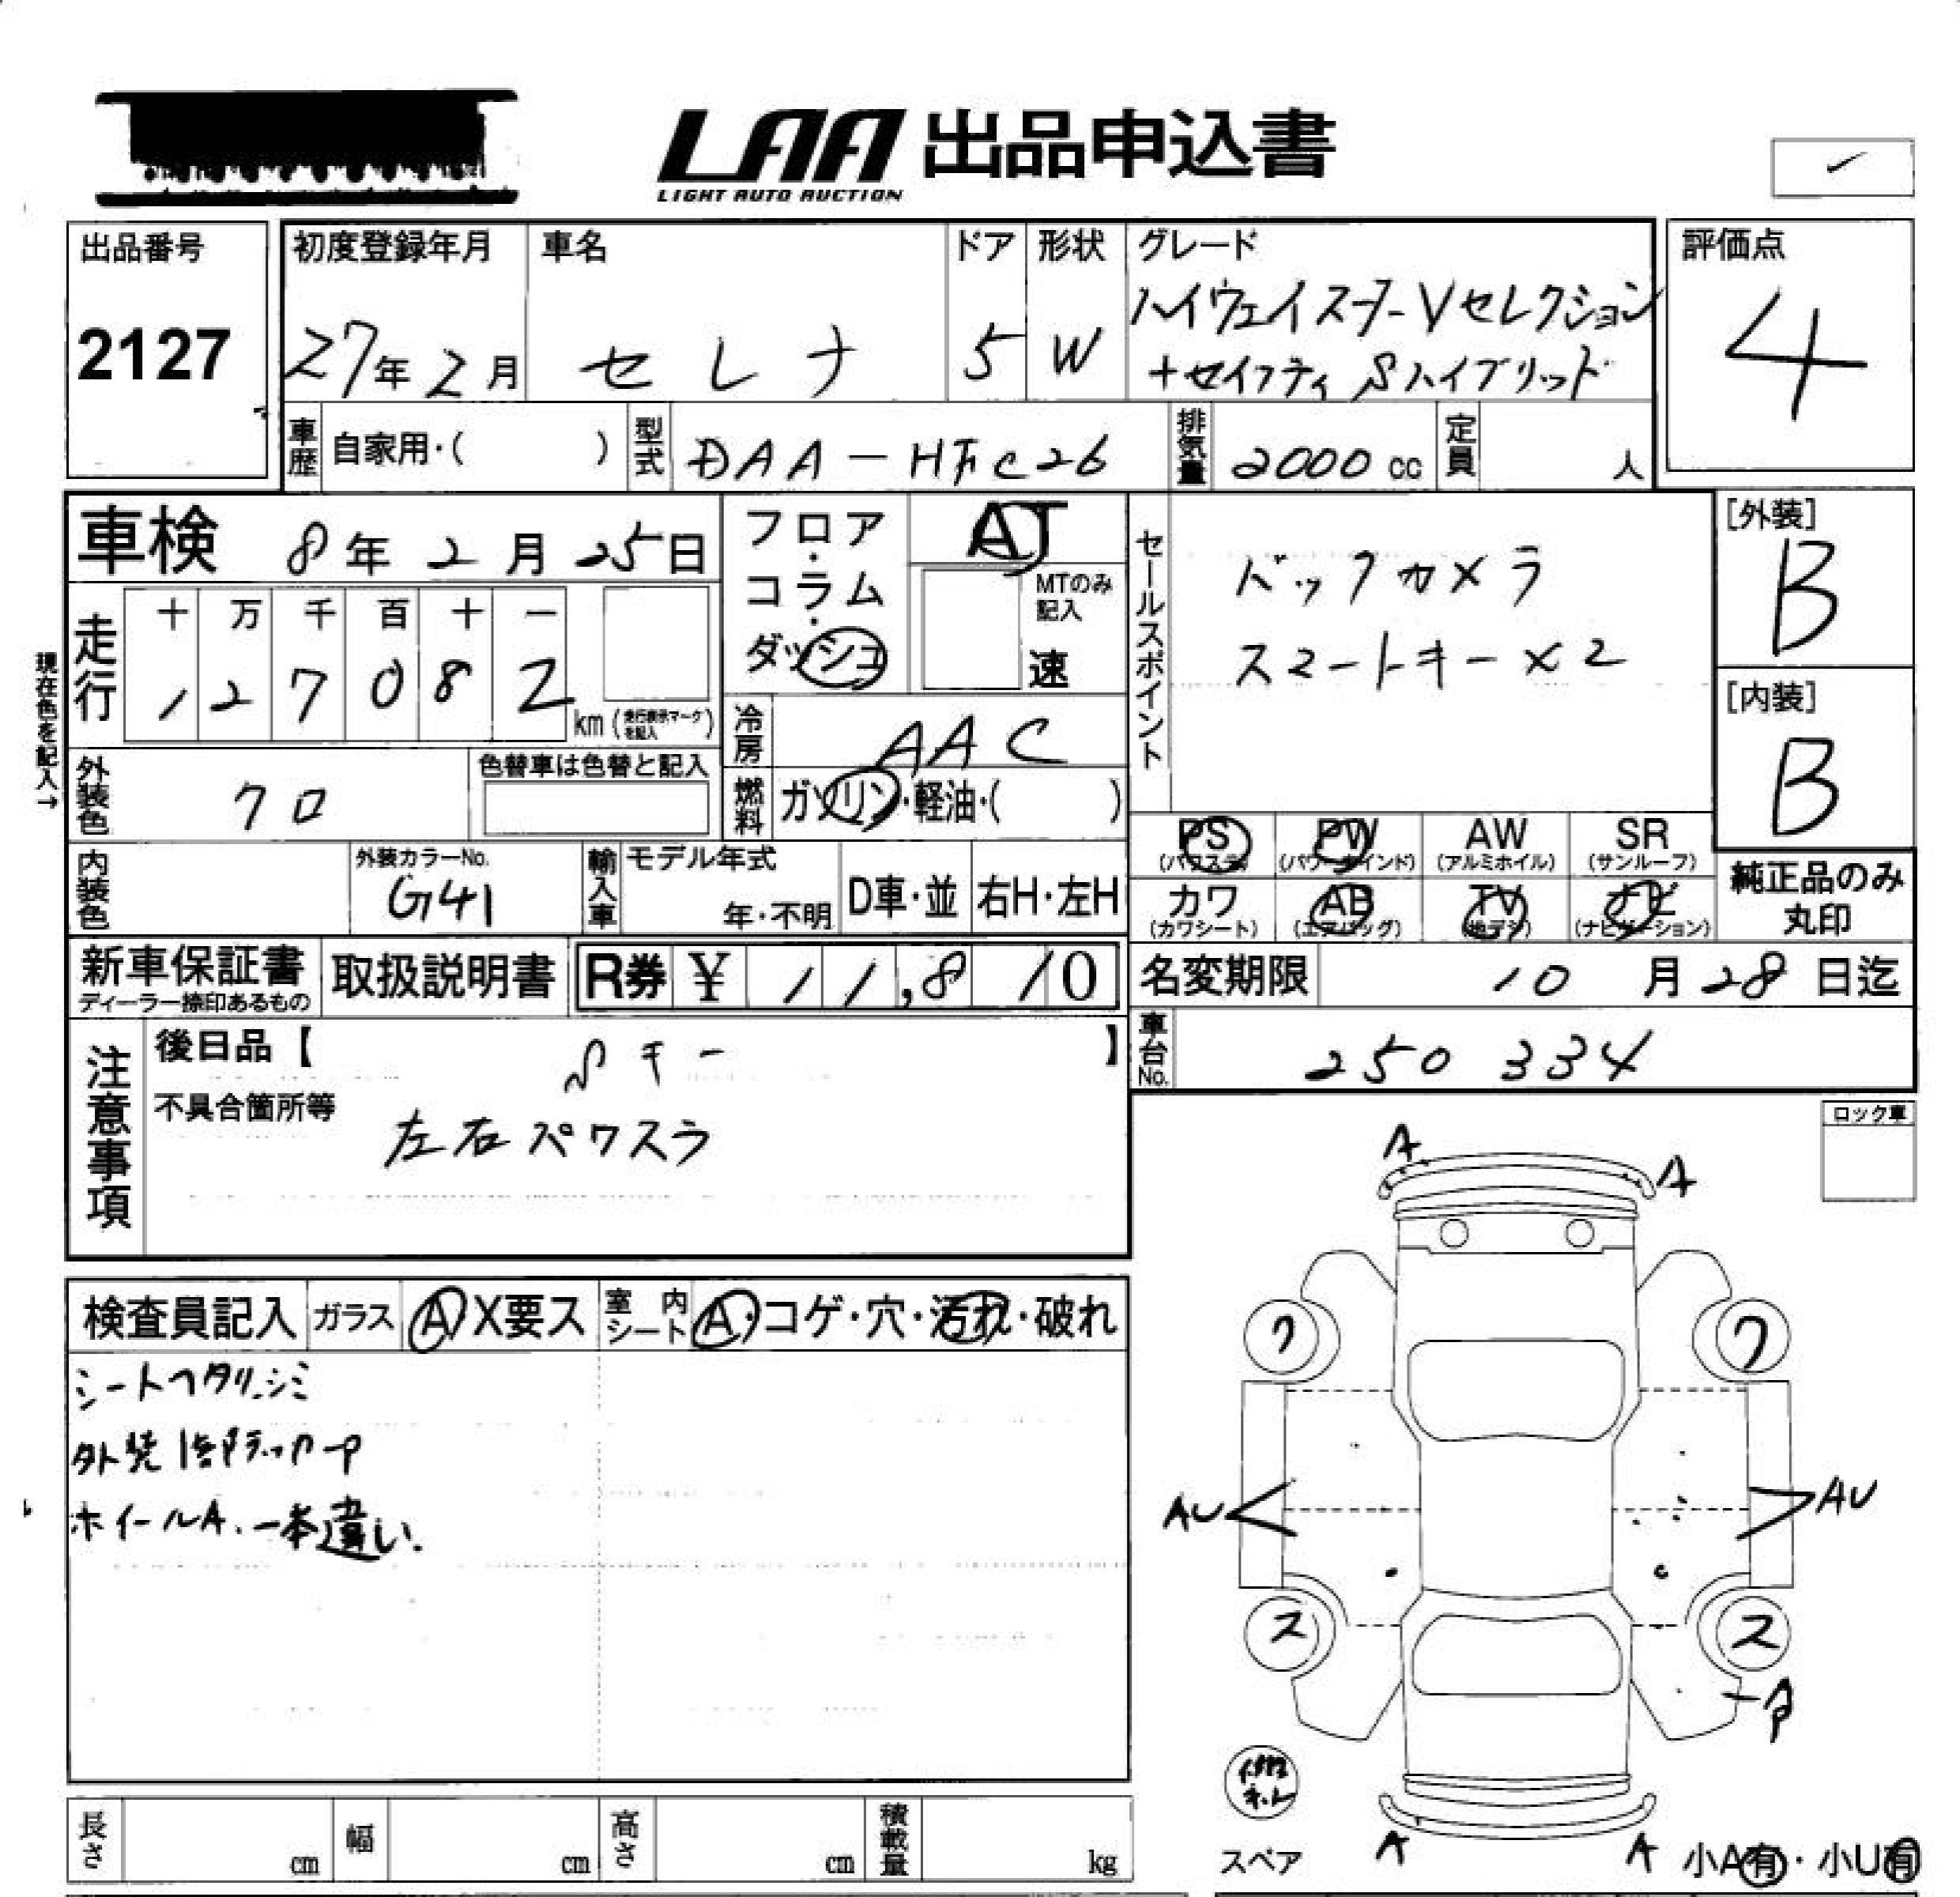 LAA 出品申込書
LIGHT AUTO AUCTION
出品番号
2127
初度登録年月
27年2月
車名
セレナ
ドア
5
形状
W
グレード
ハイウェイスターVセレクション
+セイフティ Sハイブリッド
評価点
4
車歴
自家用・( )
型式
DAA-HFC26
排気量
2000cc
定員
人
車検 8年2月25日
フロア・コラム・ダッシュ
AT
MTのみ記入
速
セールスポイント
バックカメラ
スマートキー×2
[外装]
B
[内装]
B
現在色を記入→
走行
十 万 千 百 十 一
1 2 7 0 8 2
km(走行表示マークを記入)
冷房
AAC
燃料
ガソリン・軽油・( )
外装色
クロ
色替車は色替と記入
PS (パワステ)
PW (パワーウインド)
AW (アルミホイル)
SR (サンルーフ)
カワ (カワシート)
AB (エアバッグ)
TV (地デジ)
ナビ (ナビゲーション)
純正品のみ
丸印
内装色
外装カラーNo.
G41
輸入車
モデル年式
年・不明
D車・並
右H・左H
新車保証書
ディーラー捺印あるもの
取扱説明書
R券 ¥ 11,810
名変期限 10月28日迄
車台No.
250334
注意事項
後日品【 Sキー 】
不具合箇所等
左右パワスラ
ロック車
検査員記入
ガラス
A X要ス
室内シート
A・コゲ・穴・汚れ・破れ
シートヘタリ.シミ
ホイールA.一本違い.
A
A
ワ
ワ
AU
AU
ス
ス
A
A
スペア
小A有・小U有
長さ
cm
幅
cm
高さ
cm
積載量
kg